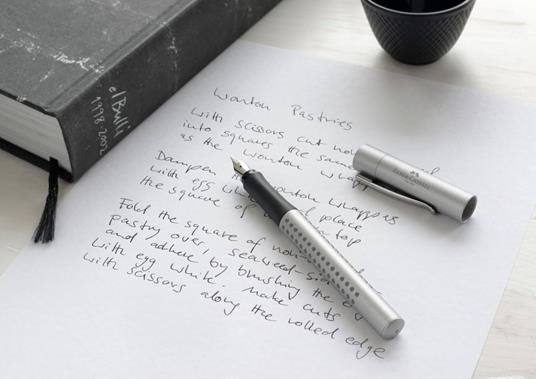 elBulli
1998-2002
Wonton Pastries
With scissors cut
into squares the same
as the wonton wrapp
Dampen the wonton wrappers
with egg place
the square of top
Fold the square of
pastry over, seaweed-s
and adhere by brushing the e
with egg white. Make cuts
with scissors along the rolled edge
FABER-CASTELL